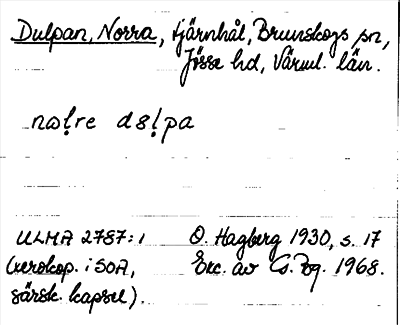 Dulpan, Norra, tjärnhål, Brunskogs sn,
Jösse hd, Värml. län.
nɷḷre d8ḷpa
ULMA 2787:1 O. Hagberg 1930, s. 17
(xerokop. i SOA, Exc. av G. Bg. 1968.
särsk. kapsel).